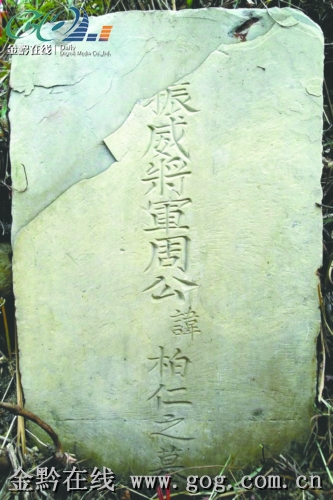 金黔在线
Daily
Digital Media Co.,Ltd.
振威將軍周公諱柏仁之墓
金黔在线 www.gog.com.cn